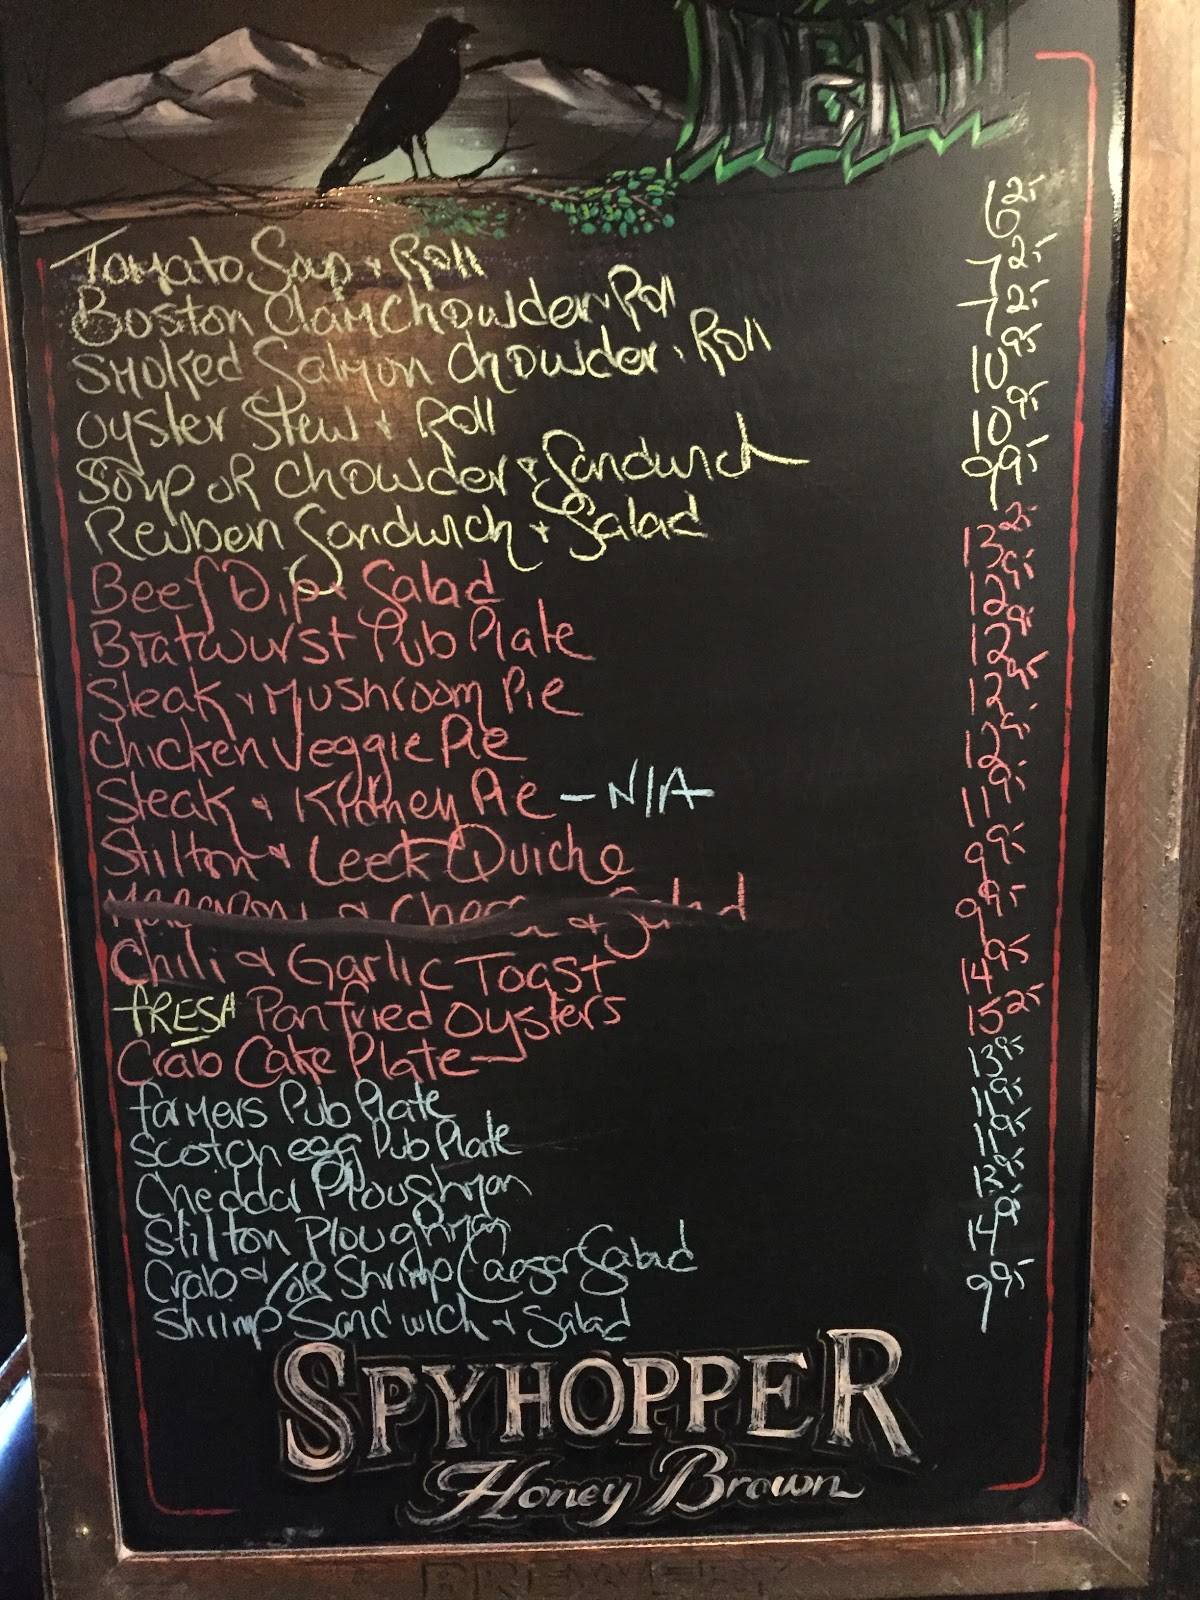 MENU
Tomato Soup & Roll 6 25
Boston Clam Chowder & Roll 7 25
Smoked Salmon Chowder & Roll 7 25
Oyster Stew & Roll 10 95
Soup or Chowder & Sandwich 10 95
Reuben Sandwich & Salad 9 95
Beef Dip & Salad 13 25
Bratwurst Pub Plate 12 95
Steak & Mushroom Pie 12 95
Chicken Veggie Pie 12 95
Steak & Kidney Pie - N/A 12 95
Stilton & Leek Quiche 11 95
Macaroni & Cheese & Salad 9 95
Chili & Garlic Toast 9 95
fresh Panfried Oysters 14 95
Crab Cake Plate 15 25
Farmers Pub Plate 13 95
Scotch egg Pub Plate 11 95
Cheddar Ploushman 11 95
Stilton Ploughman 13 95
Crab &/or Shrimp Caesar Salad 14 95
Shrimp Sandwich & Salad 9 95
SPYHOPPER
Honey Brown
BREWERY